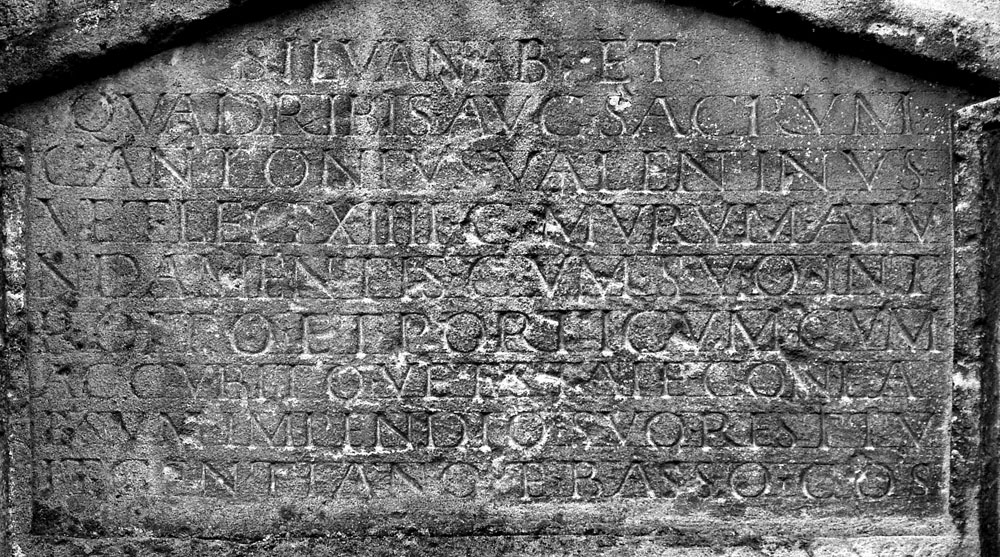 SILVANAB · ET ·
QVADRIBIS AVG SACRVM
C ANTONIVS VALENTINVS
VET LEG XIIII G MVRVM A FV
NDAMENTIS CVM SVO INT
ROITO ET PORTICVM CVM
ACCVBITO VETVSTATE CONLA
BSVM IMPENDIO SVO RESTITV
IT GENTIANO E BASSO COS